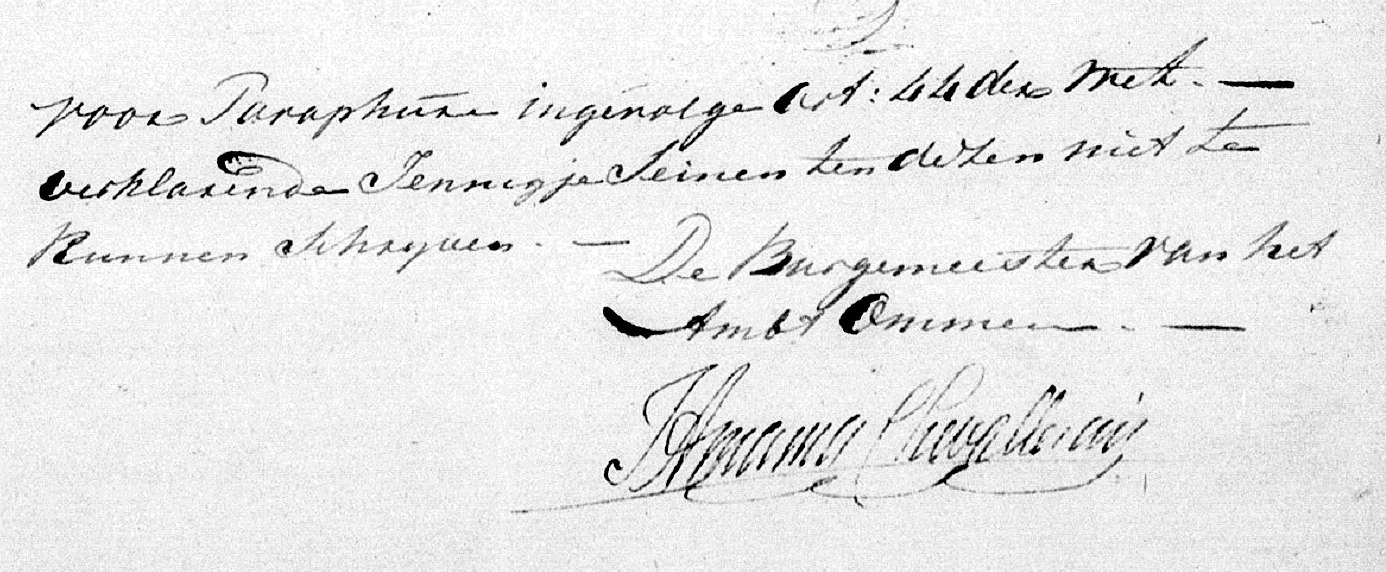 voor Paraphure ingevolge Art: 44 der Wet. —
verklarende Jennigje Seinen ten dezen niet te
kunnen schryven. —
De Burgemeester van het
Ambt Ommen. —
Amama Chevallerau